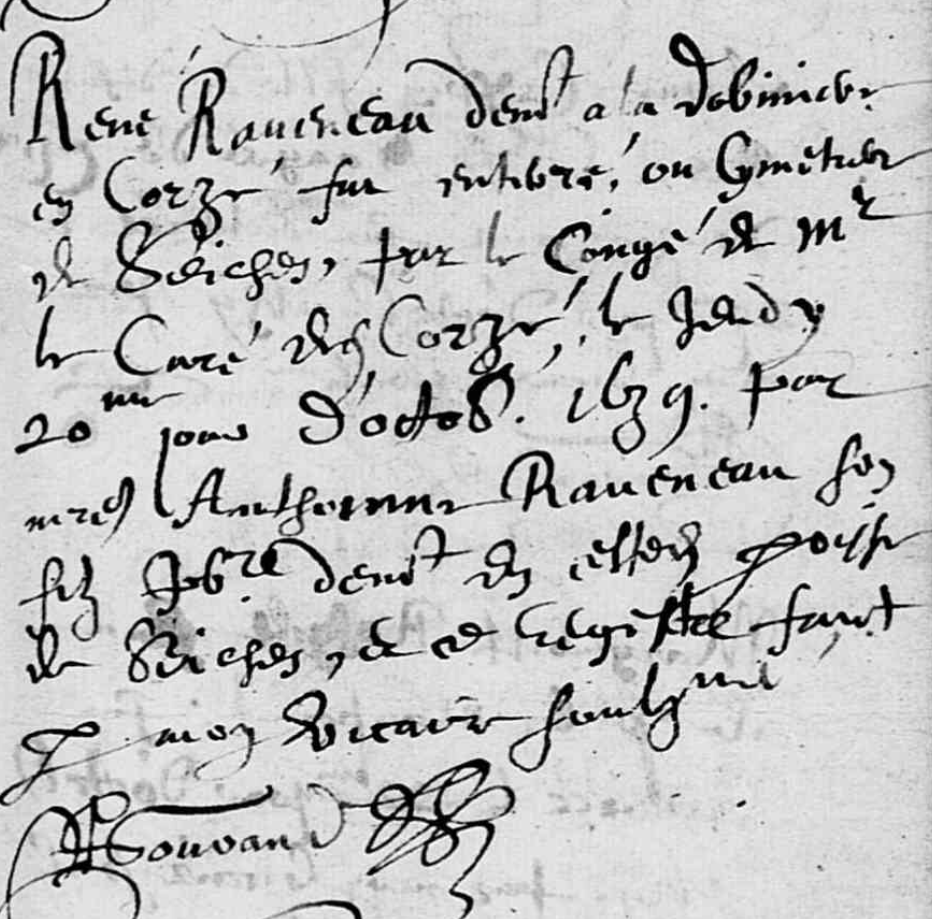 René Raveneau demt a la Dobinier
en Corzé fut enterré, ou Cymetier
de Seiches, par le Congé de Mr
le Curé de Corzé, le Jeudy
20me jour d'octob. 1639. par
Anthoinne Raveneau son
filz pbre demt en paroisse
de Seiches, et ce registre faict
p moy vicaire soubzne